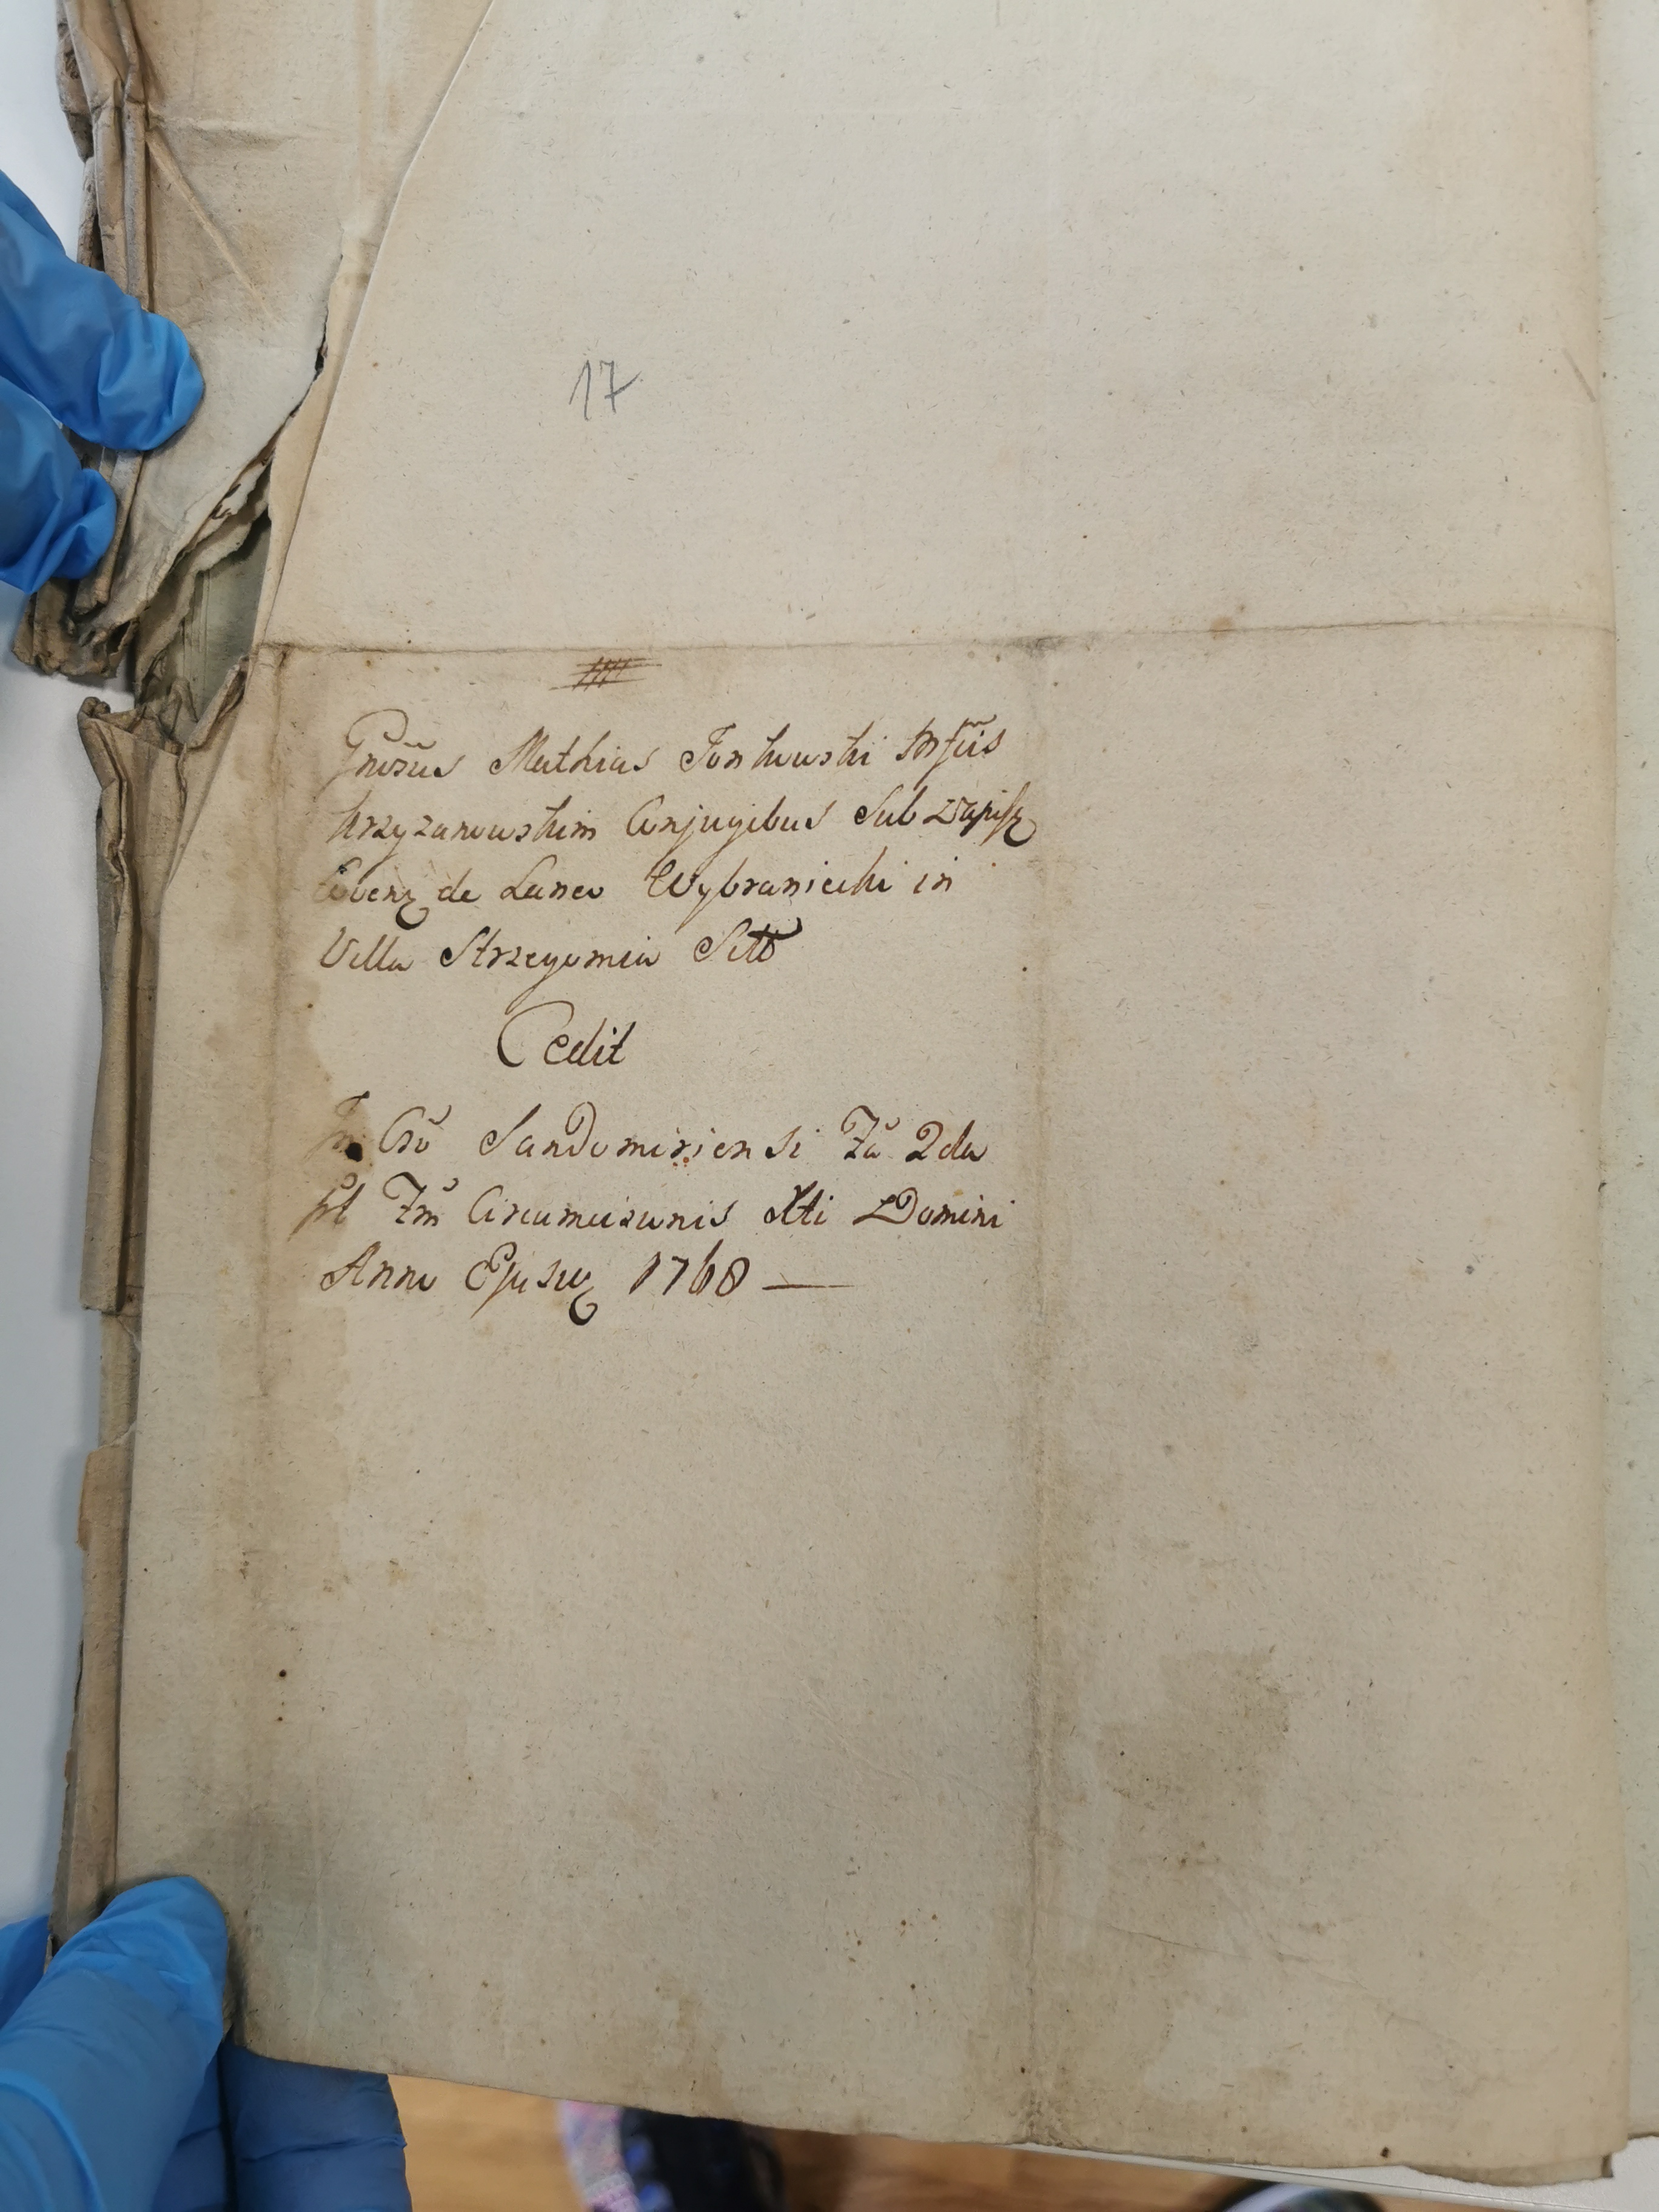 17
Gnosus Mathias Jonkowski Mfcis
Krzyzanowskim Conjugibus Sub zapisz
de Laneo Wybraniecki in
Villa Strzegomia Sitt
Cedit
In Cro Sandomiriensi Fa 2da
pt Fm Circumcisionis Xti Domini
Anno Ejusq 1768 —